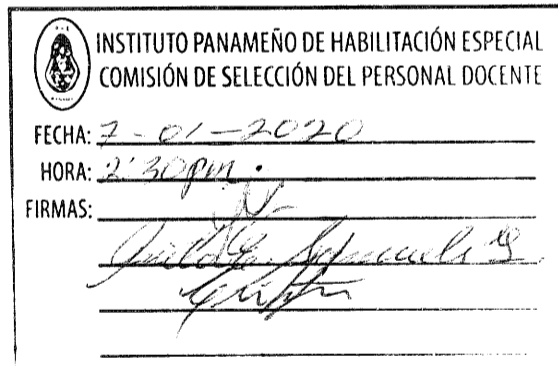 INSTITUTO PANAMEÑO DE HABILITACIÓN ESPECIAL
COMISIÓN DE SELECCIÓN DEL PERSONAL DOCENTE
FECHA: 7-01-2020
HORA: 2:30pm.
FIRMAS: